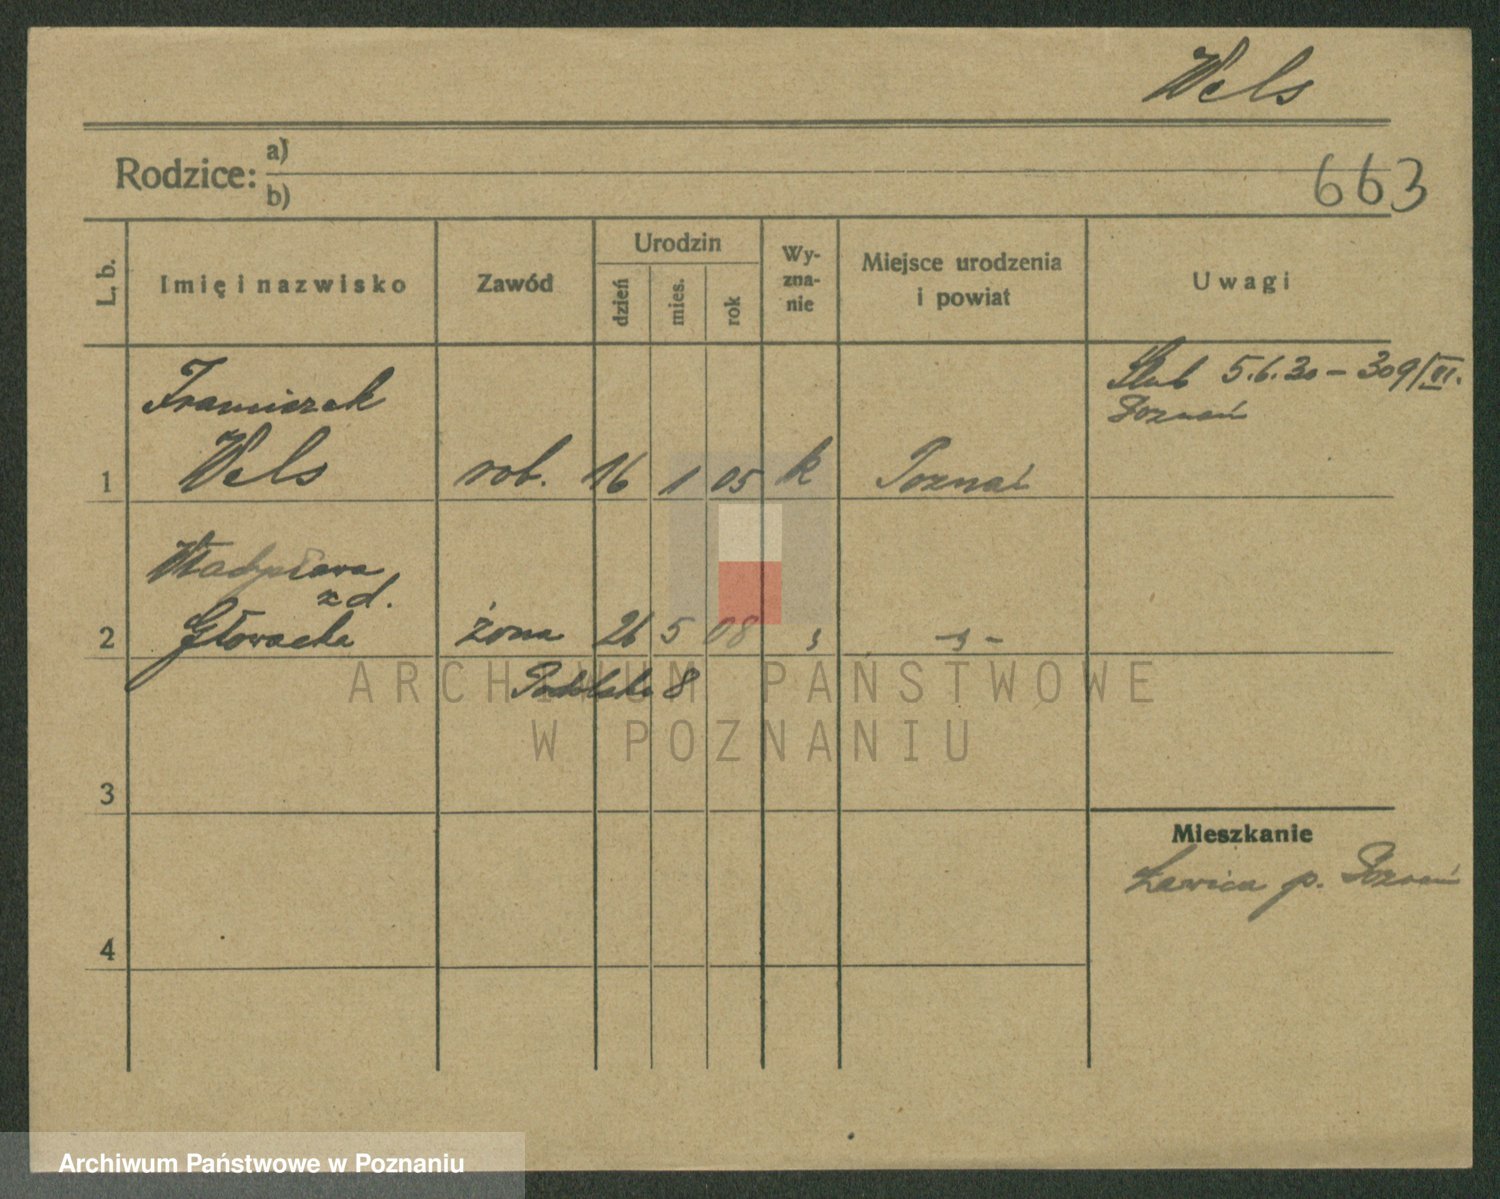 Wels
Rodzice: a)
b)
663
L. b.
Imię i nazwisko
Zawód
Urodzin
dzień
mies.
rok
Wy-
zna-
nie
Miejsce urodzenia
i powiat
Uwagi
Franciszek
Wels
1
rob. 16 1 05 k Poznań
Ślub 5.6.30 – 309/VI.
Poznań
Władysława
z d.
Głowacka
2
żona 26 5 08 „ – „ –
Podolska 8
ARCHIWUM PAŃSTWOWE
W POZNANIU
3
Mieszkanie
Ławica p. Poznań
4
Archiwum Państwowe w Poznaniu